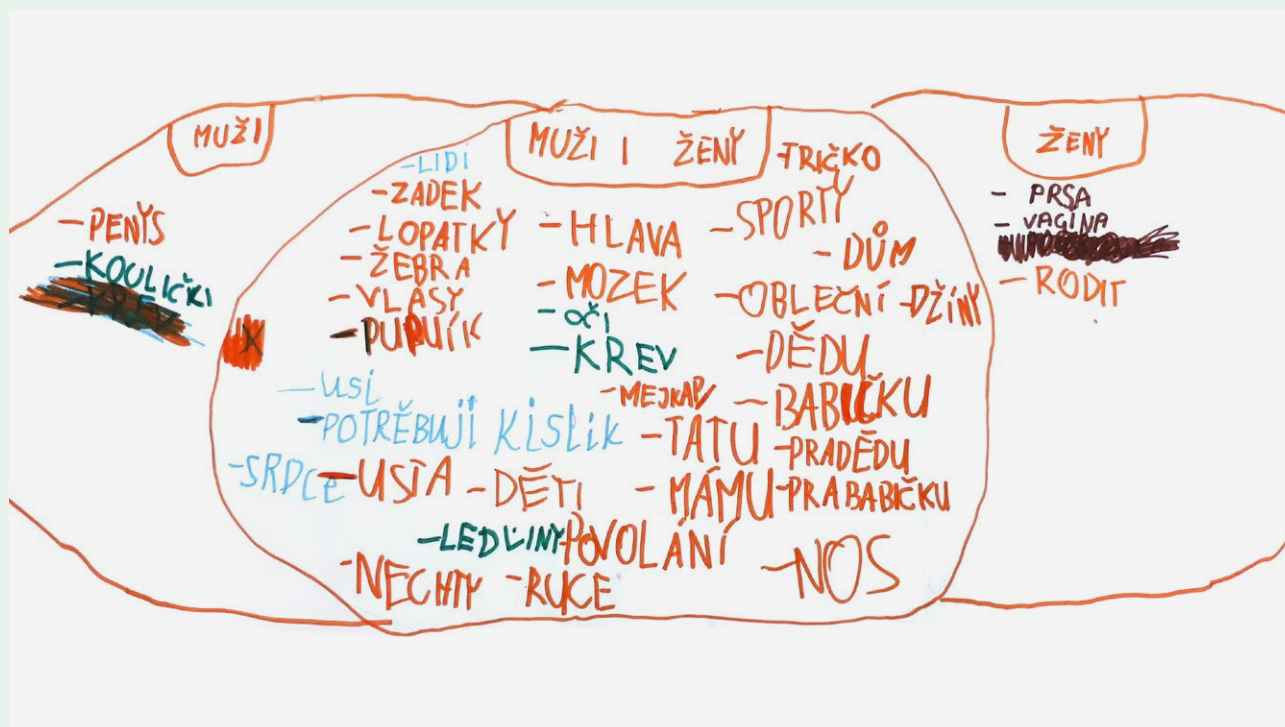 MUŽI
- PENYS
- KOULIČKI
MUŽI I ŽENY
- LIDI
- ZADEK
- LOPATKY
- ŽEBRA
- VLASY
- PUPUÍK
- USI
- POTRĚBUJÍ KISLIK
- SRDCE
- USTA
- DĚTI
- LEDVINY
- NECHTY
- RUCE
- HLAVA
- MOZEK
- OČI
- KREV
- MEJKAP
- TATU
- MÁMU
- POVOLÁNÍ
- TRIČKO
- SPORTY
- DŮM
- OBLEČNÍ
- DŽÍNY
- DĚDU
- BABIČKU
- PRADĚDU
- PRABABIČKU
- NOS
ŽENY
- PRSA
- VAGINA
- RODIT